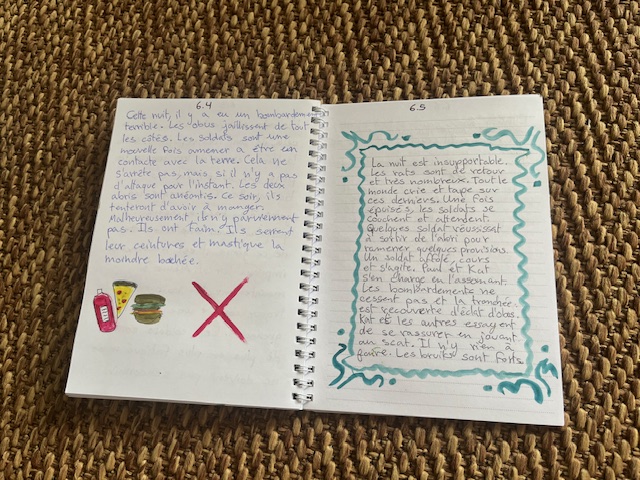 6.4
Cette nuit, il y a eu un bombardement
terrible. Les obus jaillissent de tout
les côtés. Les soldats sont une
nouvelle fois amener a être en
contacte avec la terre. Cela ne
s'arrête pas, mais, si il n'y a pas
d'attaque pour l'instant. Les deux
abris sont anéantis. Ce soir, ils
tenteront d'avoir à manger.
Malheureusement, ils n'y parviennent
pas. Ils ont faim. Ils serrent
leur ceintures et mastique la
moindre bouchée.
6.5
La nuit est insupportable.
Les rats sont de retour
et très nombreux. Tout le
monde crie et tape sur
ces derniers. Une fois
épuisés, les soldats se
couchent et attendent.
Quelques soldat réussissent
à sortir de l'abri pour
ramener quelques provisions.
Un soldat affolé, cours
et s'agite. Paul et Kat
s'en charge en l'assomant.
Les bombardements ne
cessent pas et la tranchée
est recouverte d'éclat d'obus.
Kat et les autres essayent
de se rassurer en jouant
au scat. Il n'y rien à
faire. Les bruits sont forts.